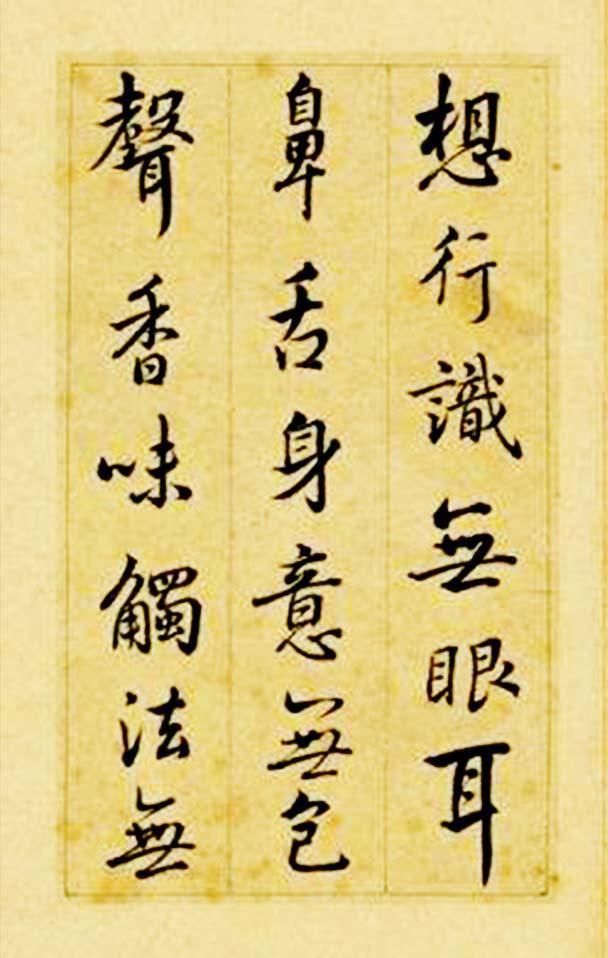 想行識無眼耳
鼻舌身意無色
聲香味觸法無